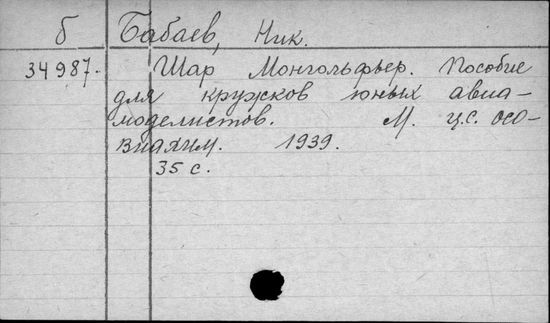 б Бабаев, Ник.
34987. Шар Монгольфьер. Пособие
для кружков юных авиа-
моделистов. М. Ц.С. Осо-
виахим. 1939.
35 с.